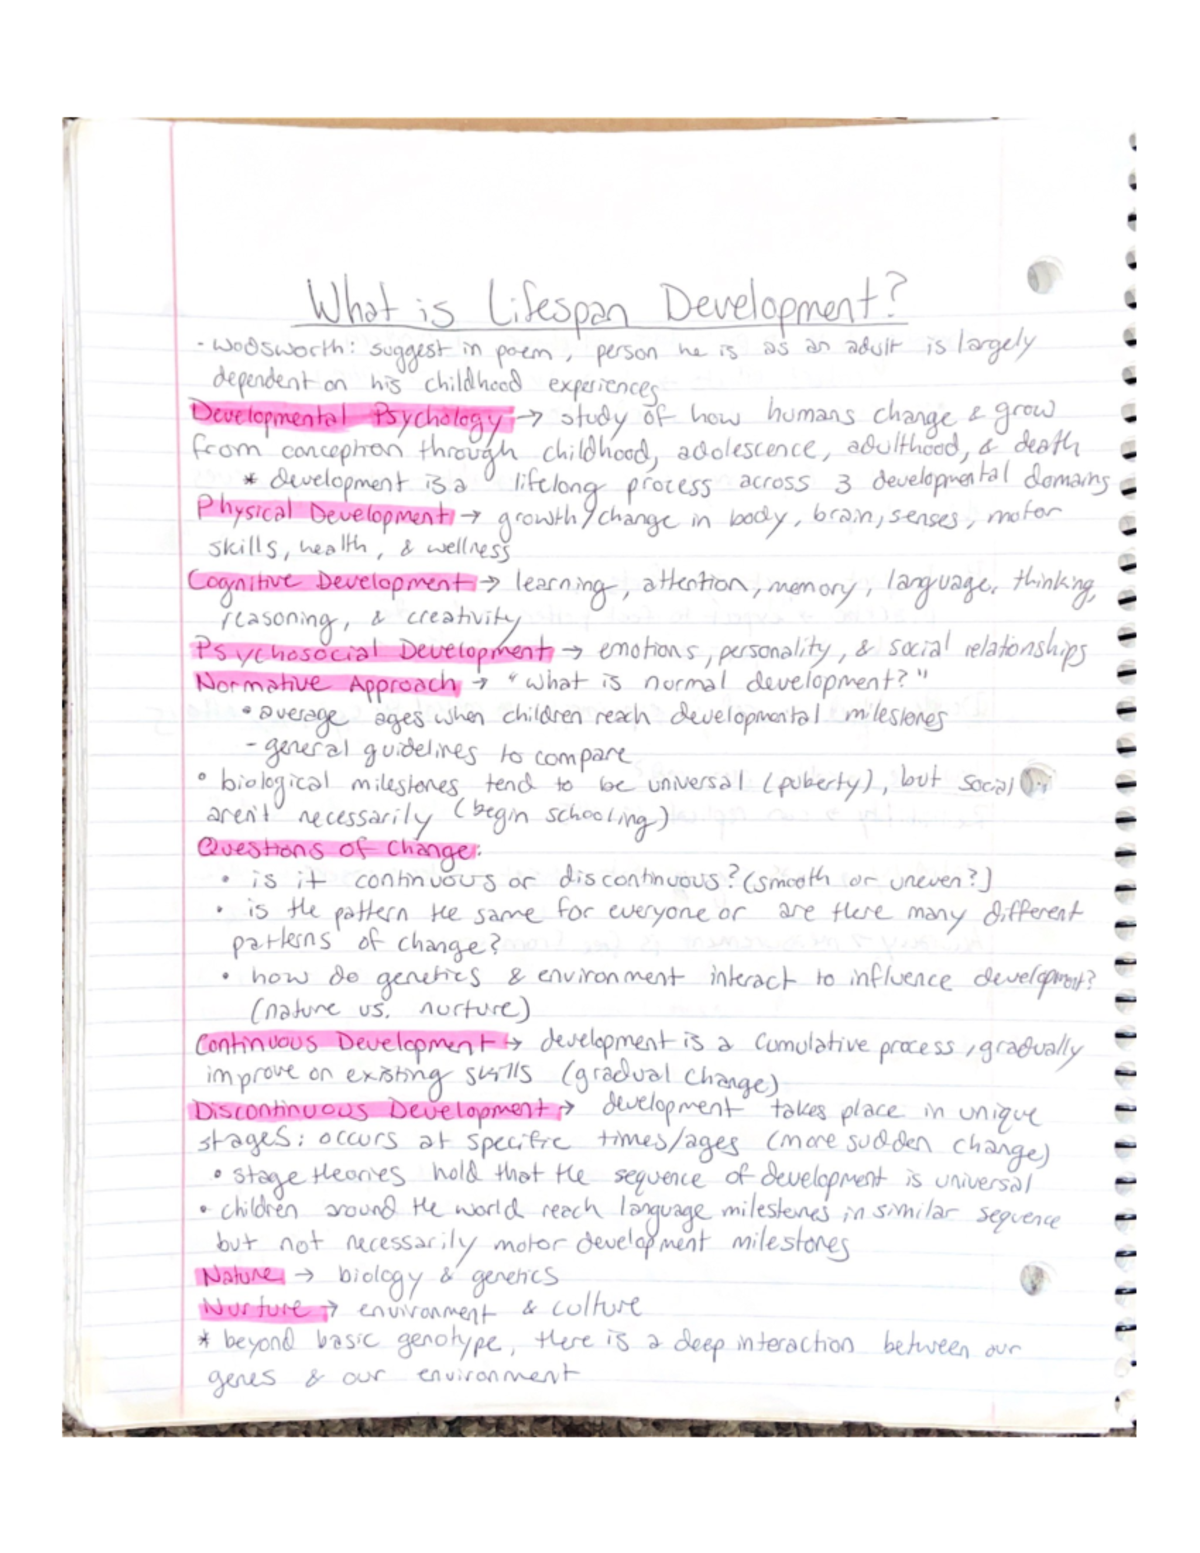 What is Lifespan Development?
- Wodsworth: suggest in poem, person he is as an adult is largely
dependent on his childhood experiences
Developmental Psychology → study of how humans change & grow
from conception through childhood, adolescence, adulthood, & death
* development is a lifelong process across 3 developmental domains
Physical Development → growth/change in body, brain, senses, motor
skills, health, & wellness
Cognitive Development → learning, attention, memory, language, thinking,
reasoning, & creativity
Psychosocial Development → emotions, personality, & social relationships
Normative Approach → "What is normal development?"
• average ages when children reach developmental milestones
- general guidelines to compare
• biological milestones tend to be universal (puberty), but social
aren't necessarily (begin schooling)
Questions of Change:
• is it continuous or discontinuous? (smooth or uneven?)
• is the pattern the same for everyone or are there many different
patterns of change?
• how do genetics & environment interact to influence development?
(nature vs. nurture)
Continuous Development → development is a cumulative process, gradually
improve on existing skills (gradual change)
Discontinuous Development → development takes place in unique
stages: occurs at specific times/ages (more sudden change)
• stage theories hold that the sequence of development is universal
• children around the world reach language milestones in similar sequence
but not necessarily motor development milestones
Nature → biology & genetics
Nurture → environment & culture
* beyond basic genotype, there is a deep interaction between our
genes & our environment